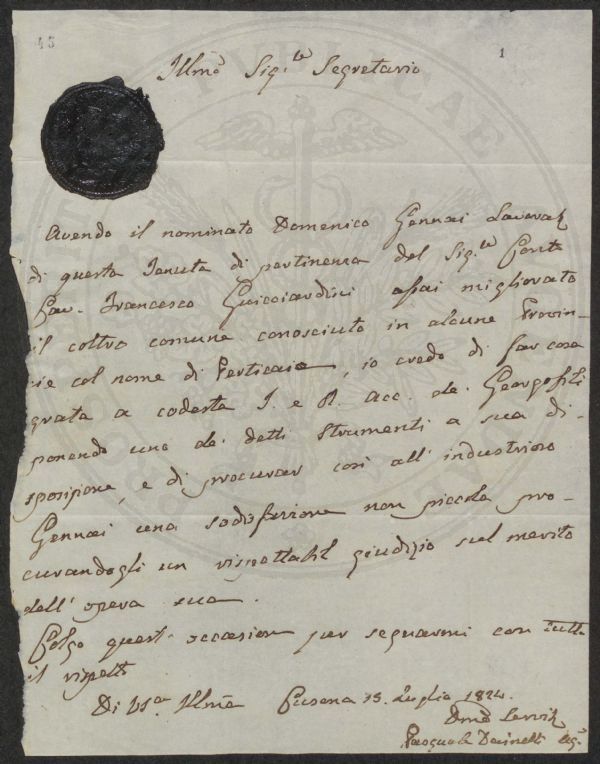 45
1
Illmo Sig.re Segretario
Avendo il nominato Domenico Gennai
di questa Tenuta di pertinenza del Sig.re Conte
Cav. Francesco Guicciardini assai migliorato
il coltro comune conosciuto in alcune Provin-
cie col nome di Perticaia, io credo di far cosa
grata a codesta I. e R. Acc. de' Georgofili
ponendo uno de' detti Strumenti a sua di-
sposizione, e di procurar così all' industrioso
Gennai una sodisfazione non piccola pro-
curandogli un rispettabil giudizio sul merito
dell' opera sua.
Colgo quest' occasione per segnarmi con tutto
il rispetto
Di VS.a Illma Cusona 13. Luglio 1824.
Dmo Servit.
Pasquale Dainelli Ag.